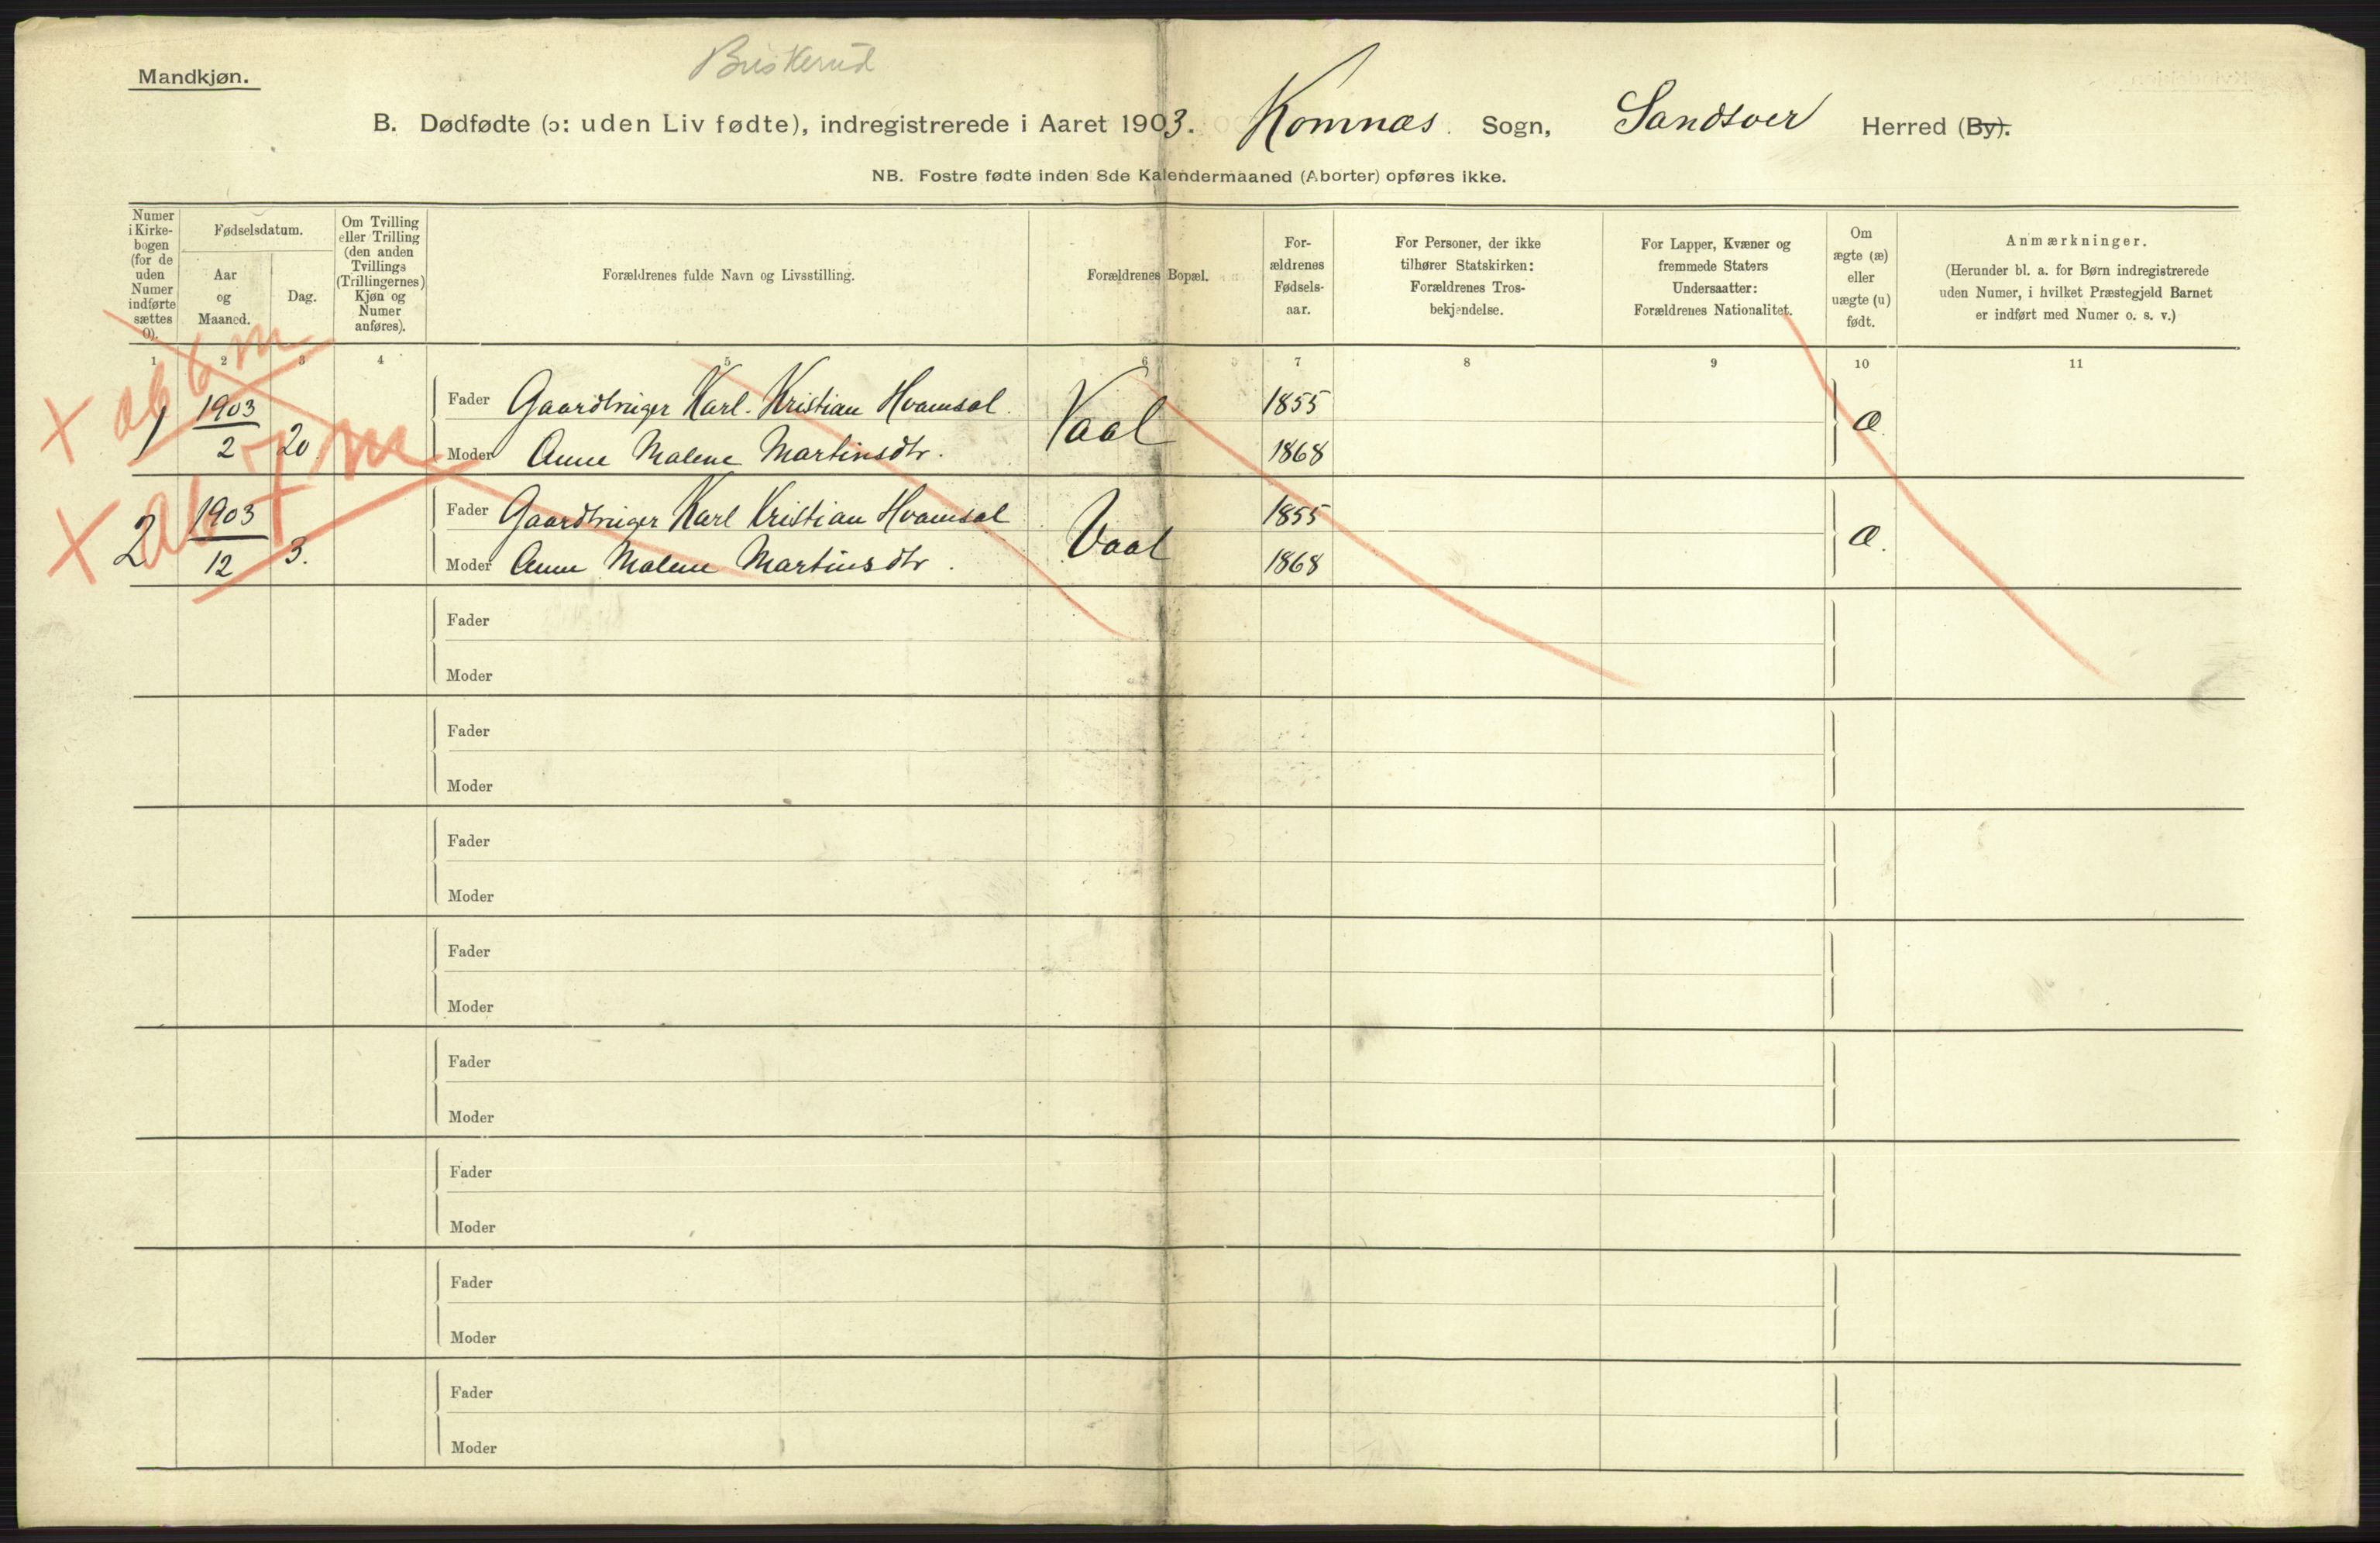 Buskerud
Mandkjøn.
B. Dødfødte (ɔ: uden Liv fødte), indregistrerede i Aaret 1903. Komnæs. Sogn, Sandsver Herred (By).
NB. Fostre fødte inden 8de Kalendermaaned (Aborter) opføres ikke.
Numer i Kirkebogen (for de uden Numer indførte sættes 0).
Fødselsdatum.
Aar og Maaned.
Dag.
Om Tvilling eller Trilling (den anden Tvillings (Trillingernes) Kjøn og Numer anføres).
Forældrenes fulde Navn og Livsstilling.
Forældrenes Bopæl.
For-ældrenes Fødsels-aar.
For Personer, der ikke tilhører Statskirken: Forældrenes Tros-bekjendelse.
For Lapper, Kvæner og fremmede Staters Undersaatter: Forældrenes Nationalitet.
Om ægte (æ) eller uægte (u) født.
Anmærkninger.
(Herunder bl. a. for Børn indregistrerede uden Numer, i hvilket Præstegjeld Barnet er indført med Numer o. s. v.)
1 2 3 4 5 6 7 8 9 10 11
+ ab 6 m
1 1903/2 20. Fader Gaardbruger Karl Kristian Hvamsal. Vaal 1855 æ.
Moder Anne Malene Martinsdtr. 1868
+ ab 7 m
2 1903/12 3. Fader Gaardbruger Karl Kristian Hvamsal Vaal 1855 æ.
Moder Anne Malene Martinsdtr. 1868
Fader
Moder
Fader
Moder
Fader
Moder
Fader
Moder
Fader
Moder
Fader
Moder
Fader
Moder
Fader
Moder